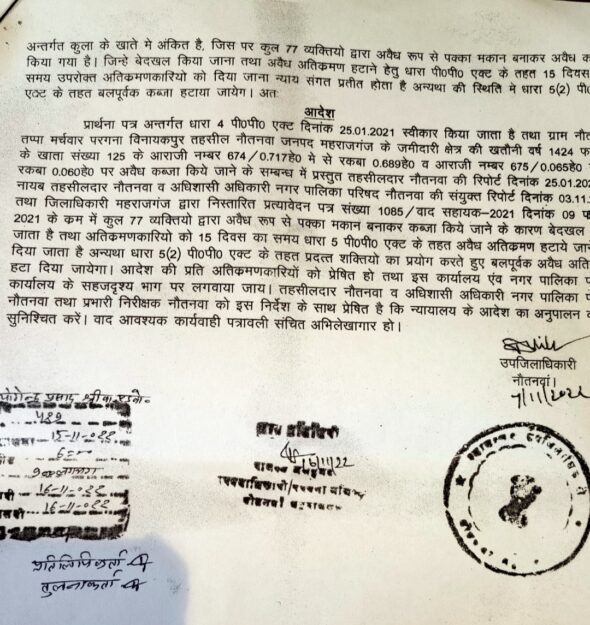 अन्तर्गत कुला के खाते मे अंकित है, जिस पर कुल 77 व्यक्तियो द्वारा अवैध रूप से पक्का मकान बनाकर अवैध
किया गया है। जिन्हे बेदखल किया जाना तथा अवैध अतिक्रमण हटाने हेतु धारा पी०पी० एक्ट के तहत 15 दिवस
समय उपरोक्त अतिक्रमणकारियो को दिया जाना न्याय संगत प्रतीत होता है अन्यथा की स्थिति मे धारा 5(2) पी०
एक्ट के तहत बलपूर्वक कब्जा हटाया जायेग। अतः
आदेश
प्रार्थना पत्र अन्तर्गत धारा 4 पी०पी० एक्ट दिनांक 25.01.2021 स्वीकार किया जाता है तथा ग्राम
तप्पा मर्चवार परगना विनायकपुर तहसील नौतनवा जनपद महराजगंज के जमीदारी क्षेत्र की खतौनी वर्ष 1424
के खाता संख्या 125 के आराजी नम्बर 674/0.717हे० मे से रकबा 0.689हे० व आराजी नम्बर 675/0.065हे०
रकबा 0.060हे० पर अवैध कब्जा किये जाने के सम्बन्ध में प्रस्तुत तहसीलदार नौतनवा की रिपोर्ट दिनांक 25.01.202
नायब तहसीलदार नौतनवा व अधिशासी अधिकारी नगर पालिका परिषद नौतनवा की संयुक्त रिपोर्ट दिनांक 03.11.
तथा जिलाधिकारी महराजगंज द्वारा निस्तारित प्रत्यावेदन पत्र संख्या 1085/वाद सहायक-2021 दिनांक 09
2021 के क्रम में कुल 77 व्यक्तियों द्वारा अवैध रूप से पक्का मकान बनाकर कब्जा किये जाने के कारण बेदखल
जाता है तथा अतिक्रमणकारियों को 15 दिवस का समय धारा 5 पी०पी० एक्ट के तहत अवैध अतिक्रमण हटाये जाने
दिया जाता है अन्यथा धारा 5(2) पी०पी० एक्ट के तहत प्रदत्त शक्तियो का प्रयोग करते हुए बलपूर्वक अवैध
हटा दिया जायेगा। आदेश की प्रति अतिक्रमणकारियों को प्रेषित हो तथा इस कार्यालय एंव नगर पालिका
कार्यालय के सहजदृश्य भाग पर लगवाया जाय। तहसीलदार नौतनवा व अधिशासी अधिकारी नगर पालिका
नौतनवा तथा प्रभारी निरीक्षक नौतनवा को इस निर्देश के साथ प्रेषित है कि न्यायालय के आदेश का अनुपालन
सुनिश्चित करें। वाद आवश्यक कार्यवाही पत्रावली संचित अभिलेखागार हो।
उपजिलाधिकारी
नौतनवां।
7/11/2022
प्रसाद
15-11-022
16/11/22
16-11-022
16-11-022
प्रतिलिपिकर्ता
तुलनाकर्ता